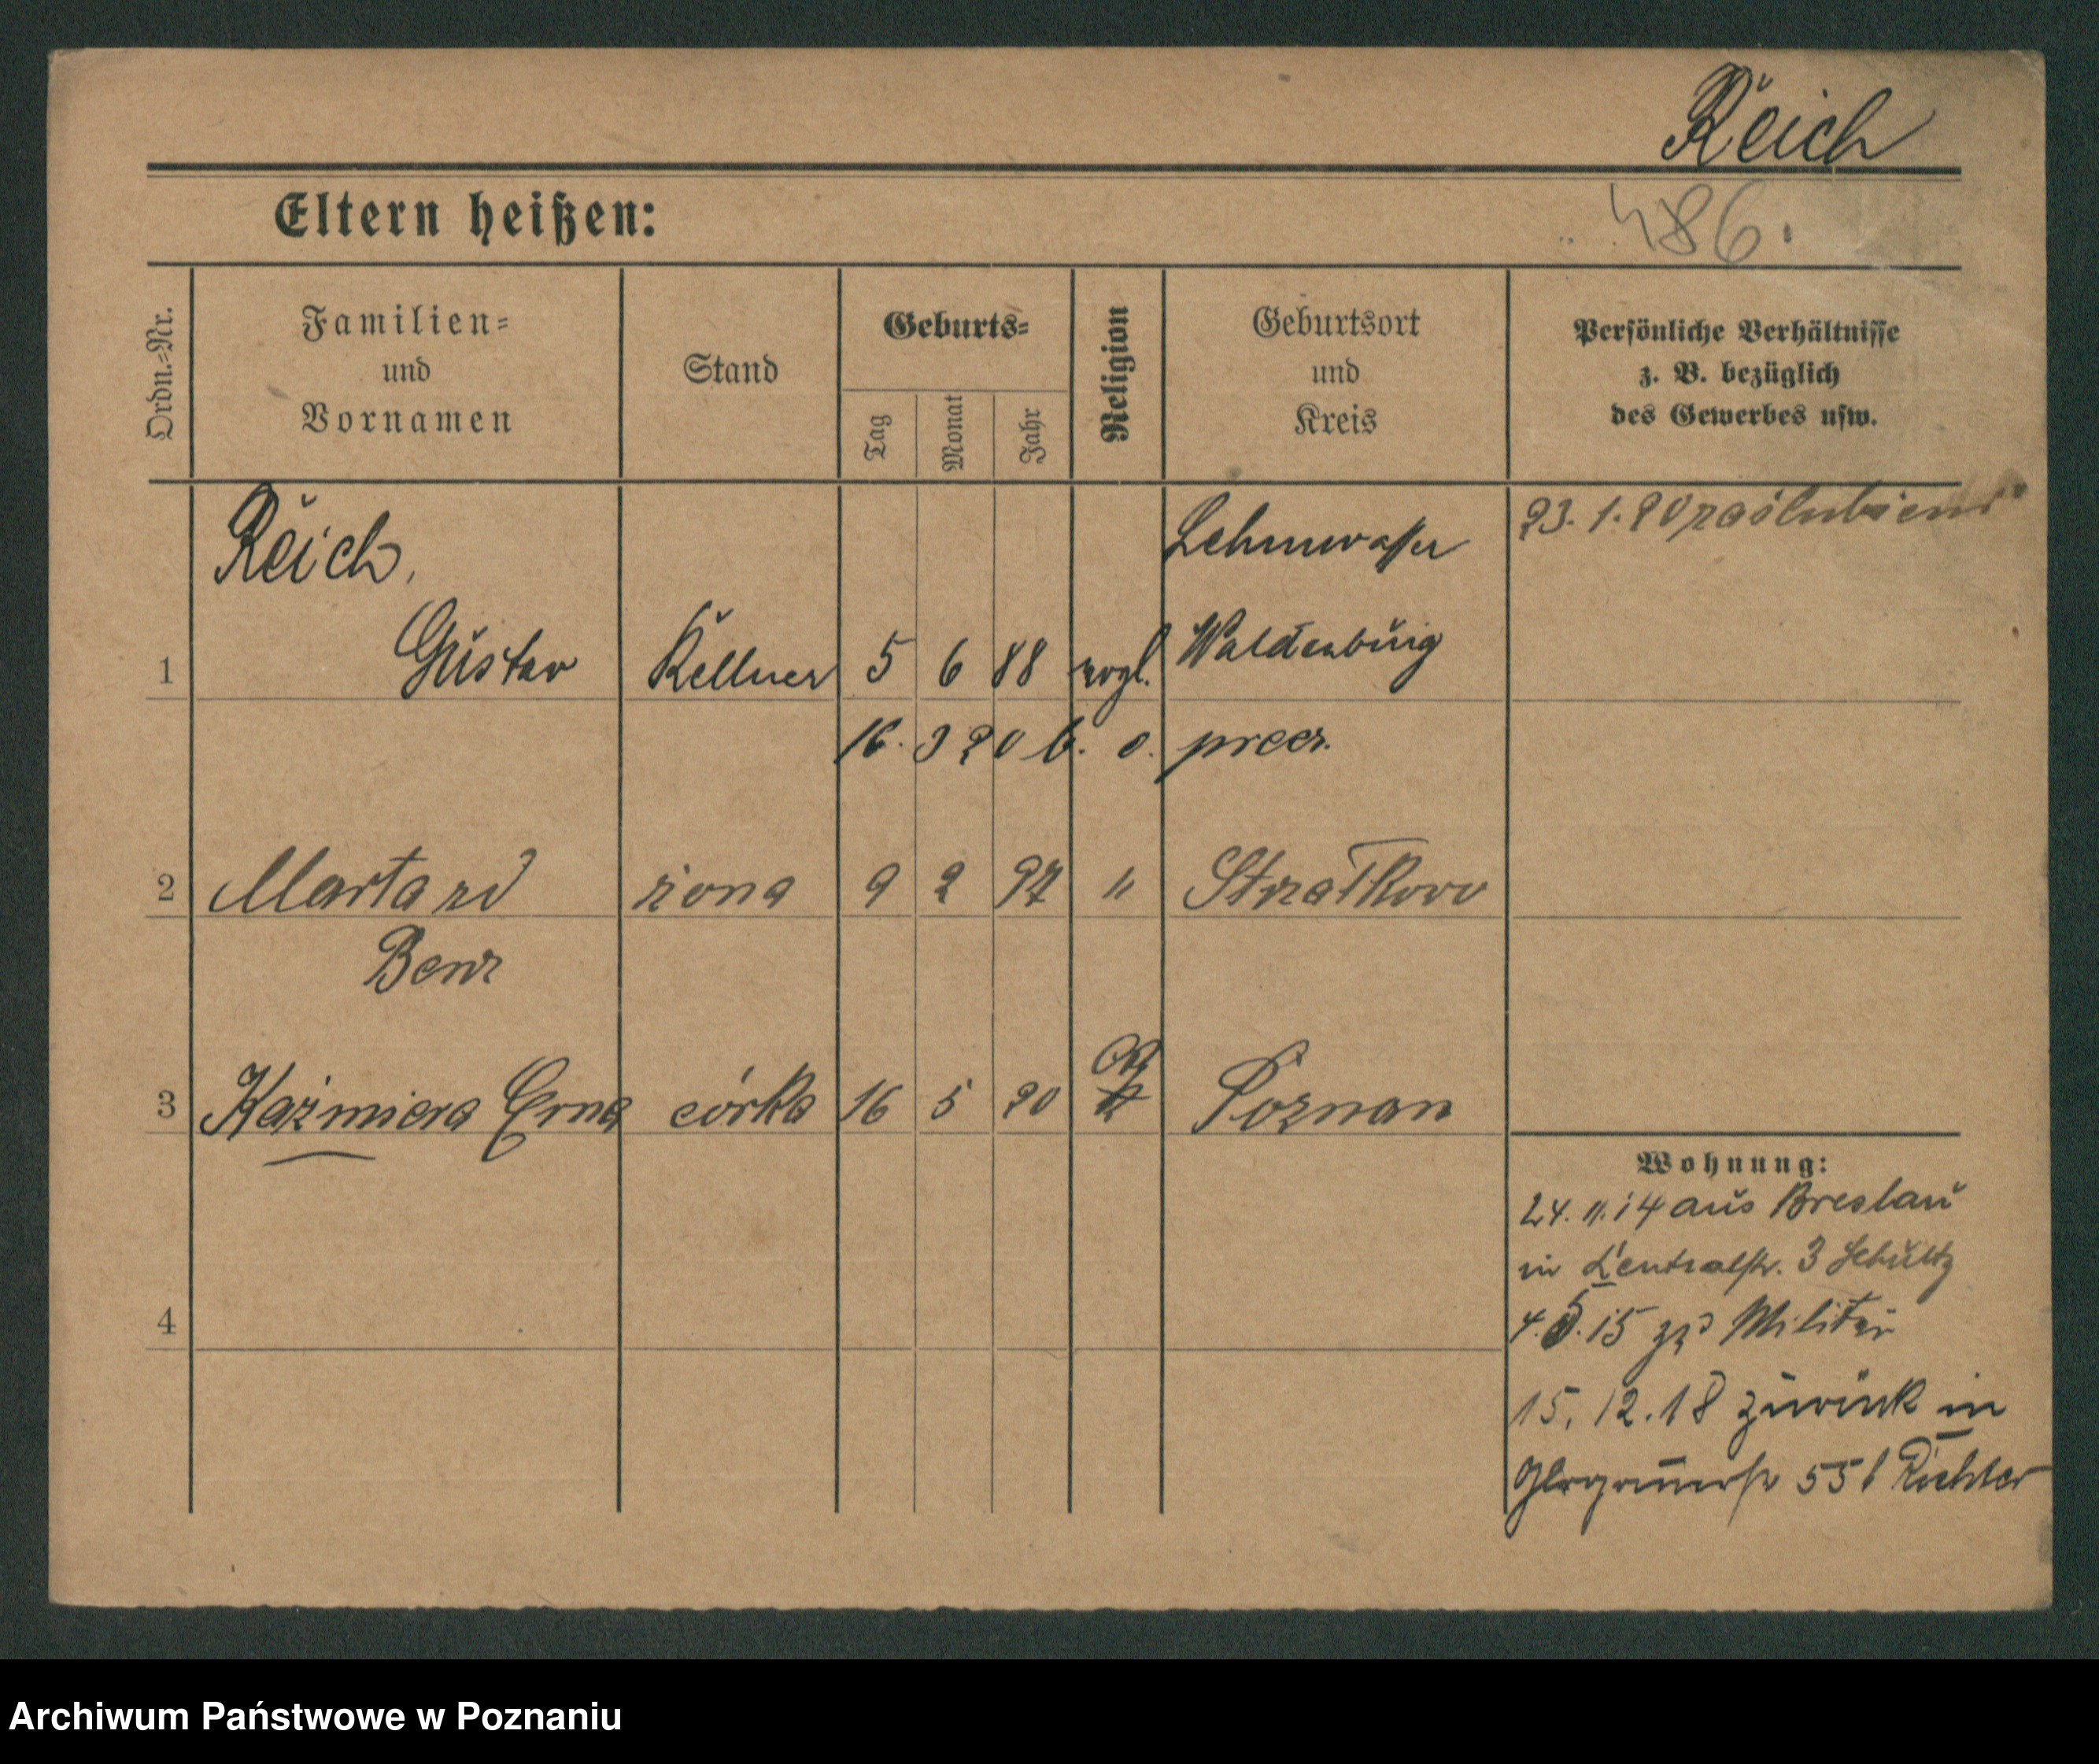 Reich
486.
Eltern heißen:
Ordn.=Nr.
Familien= und Vornamen
Stand
Geburts=
Tag
Monat
Jahr
Religion
Geburtsort und Kreis
Persönliche Verhältnisse
z. B. bezüglich
des Gewerbes usw.
Reich, Lehmwasser 23. 1. 20 zaślubieni
1 Gustav Kellner 5 6 88 evgl. Waldenburg
16. 3 20 b. o. precz.
2 Marta zd żona 9 2 97 " Strzałkowo
Benz
3 Kaźmiera Erna córka 16 5 20 Poznan
4
Wohnung:
24. 11. 14 aus Breslau
in Centralstr. 3 Schultz
4. 5. 15 zum Militär
15. 12. 18 zurück in
55 Richter
Archiwum Państwowe w Poznaniu